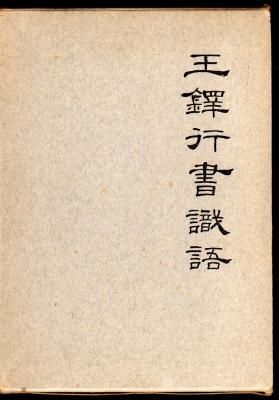 王鐸行書識語